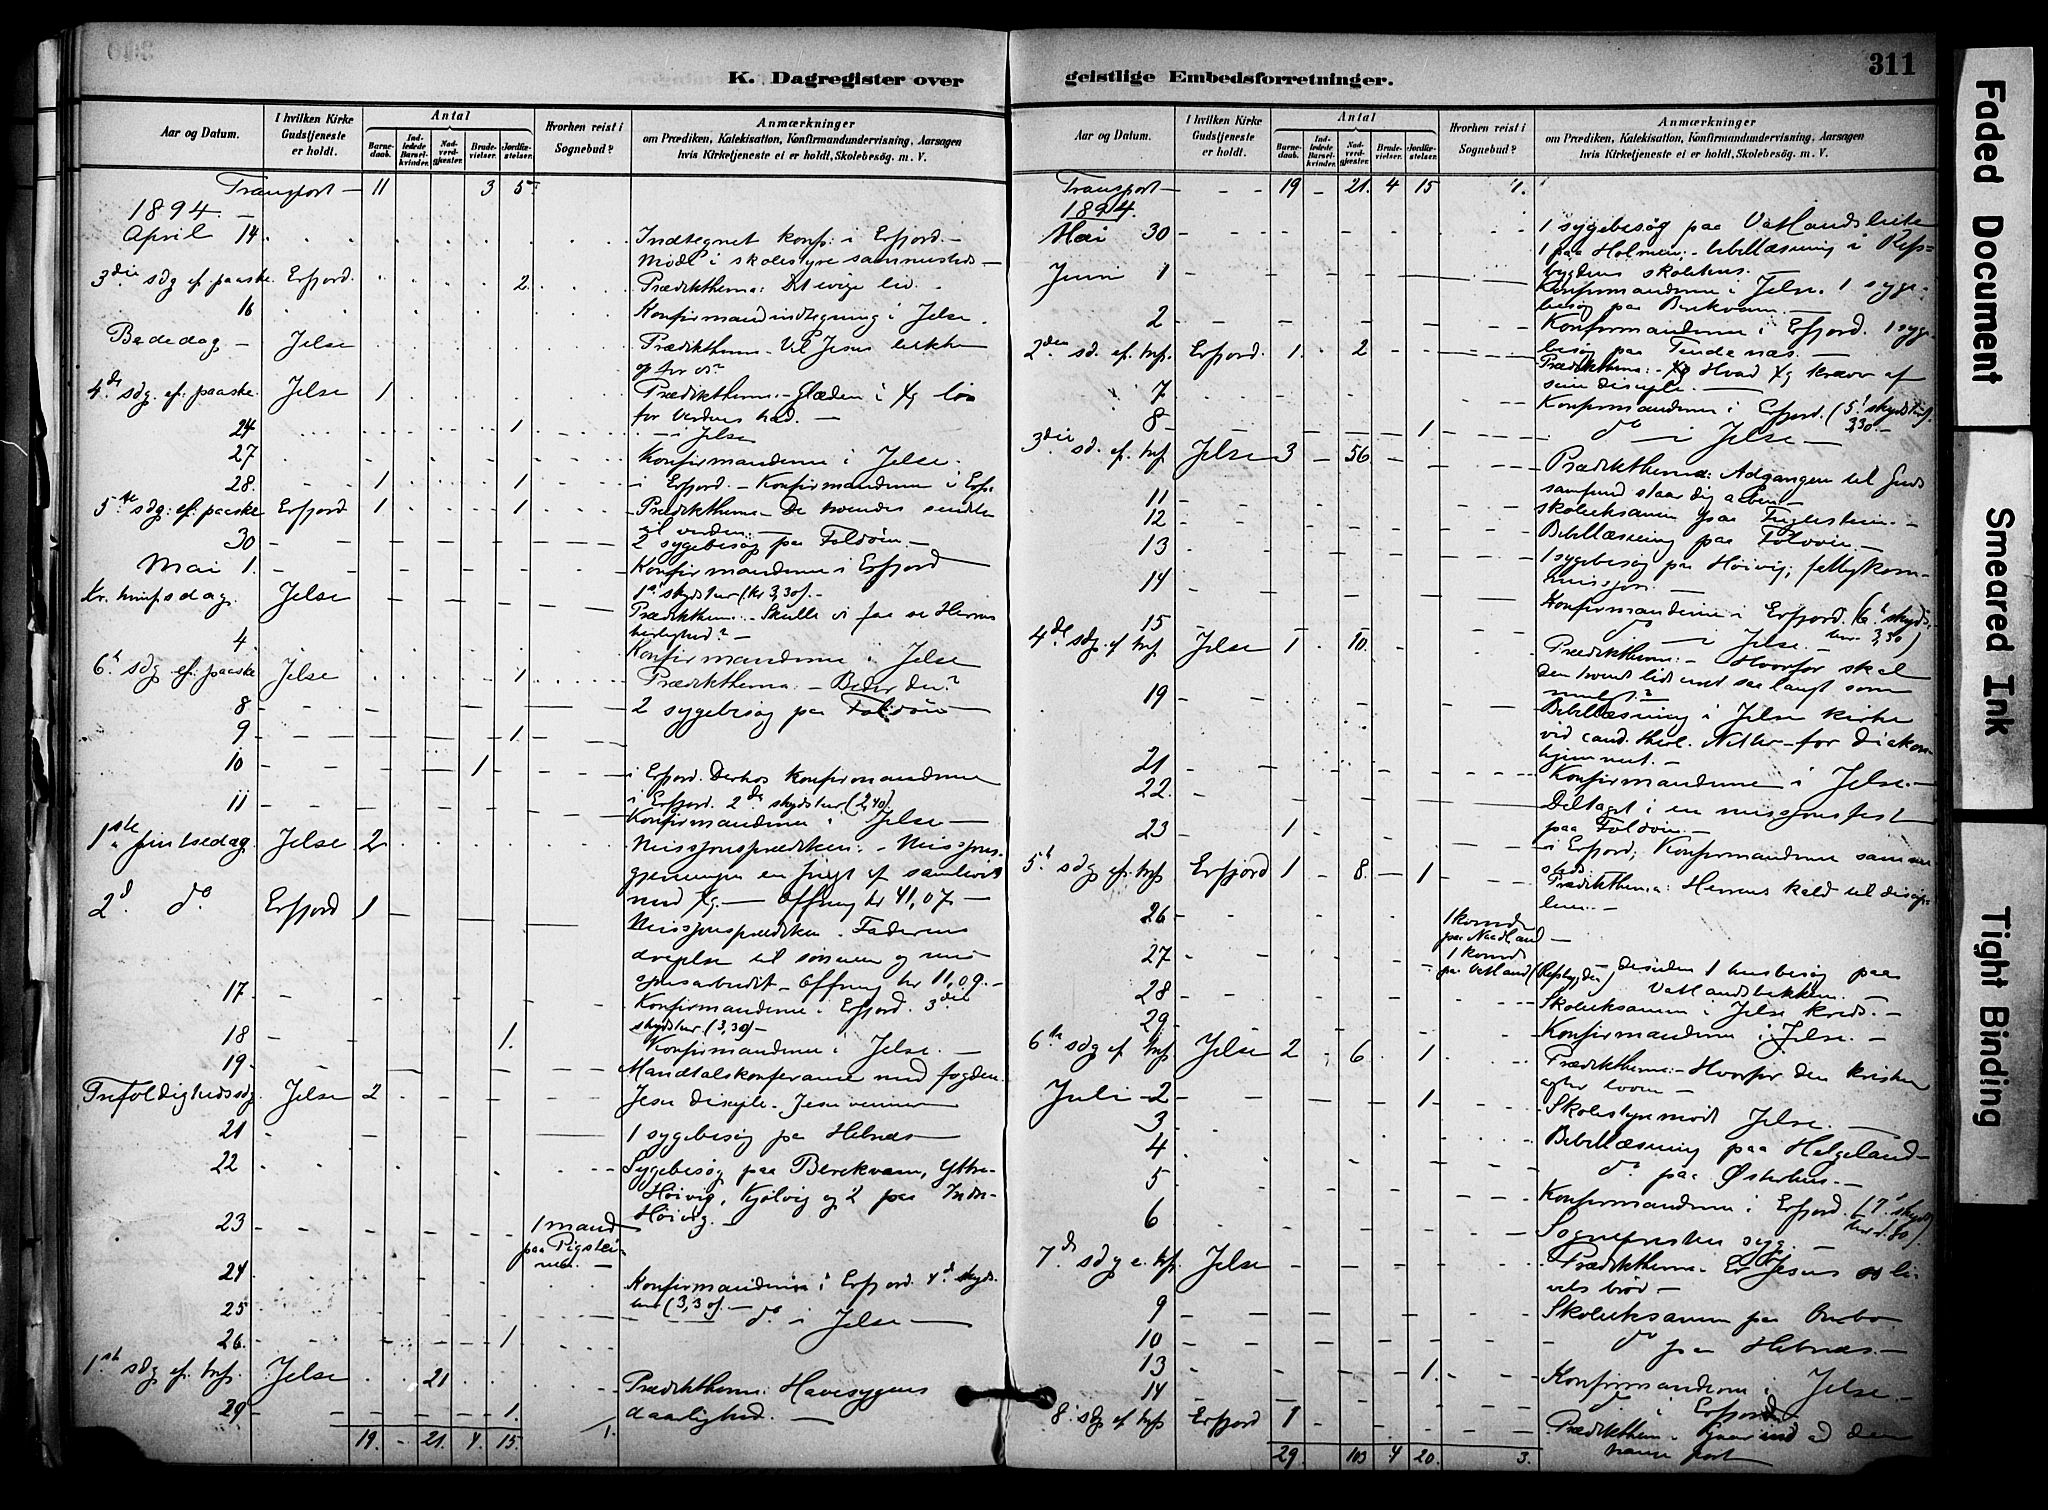 K. Dagregister over
Aar og Datum.
I hvilken Kirke Gudstjeneste er holdt.
Antal
Barnedaab.
Indledede Barselkvinder.
Nadverdgjester.
Brudevielser.
Jordfæstelser.
Hvorhen reist i Sognebud?
Anmærkninger
om Prædiken, Katekisation, Konfirmandundervisning, Aarsagen
hvis Kirketjeneste ei er holdt, Skolebesøg. m. V.
Transport 11 3 5
1894.
April 14 Indtegnet konf: i Erfjord.
Møde i skolestyre sammesteds
3die sdg ef. paaske. Erfjord. 2. Prædikthema: Det evige liv.
16 Konfirmandindtegning i Jelse.
Bededag Jelse Prædikthema. Vil Jesus lukke
op for os?
4de sdg. ef. paaske. Jelse 1 Prædikthema. Glæden i
for Verdens had.
24 1 i Jelse
27 Konfirmanderne i Jelse.
28. 1 1 i Erfjord. Konfirmanderne i Erfj.
5te sdg. ef. paaske Erfjord 1 1 Prædikthema
30 2 sygebesøg paa Foldøen.
Mai 1. Konfirmanderne i Erfjord
1ste skydstur (kr 3,30).
Kr. himfsdag. Jelse Prædikthema. Skulle vi faa se Herrens
herlighed?
4 Konfirmanderne i Jelse
6te sdg ef. paaske Jelse 1 Prædikthema: Beder den?
8 2 sygebesøg paa Foldøen
9 1.
10 1 i Erfjord. Derhos konfirmanderne
i Erfjord. 2den skydstur (2,40).
11 Konfirmanderne i Jelse
1ste pintsedag Jelse 2 Missjonsprædiken. Missjons-
gjerningen en frugt af samlivet
med Xg. Offring kr 41,07
2d. do Erfjord 1 Missjonsprædiken. Faderens
dragelse til sønnen og mis-
sjonsarbeidet. Offring kr 11,09.
17 Konfirmanderne i Erfjord. 3die
skydstur (3,30)
18 1. Konfirmanderne i Jelse.
19. Mandtalskonferanse med fogden.
Trefoldighedssdg. Jelse 2 Jesu disciple. Jesu venner
21 1 sygebesøg paa Hebnæs
22 Sygebesøg paa Berekvam, Ytre-
Høivig, Kjølvig og 2 paa Indre
Høivig.
23 1 mand
paa Pigstei-
nen.
24 Konfirmanderne i Erfjord. 4d skyds-
tur (3,30).
25 do i Jelse
26. 1
1ste sdg ef. tref. Jelse 21 Prædikthema: Havesygens
29 1. daarlighed.
19. 21. 4. 15. 1.
geistlige Embedsforretninger.
311
Aar og Datum.
I hvilken Kirke Gudstjeneste er holdt.
Antal
Barnedaab.
Indledede Barselkvinder.
Nadverdgjester.
Brudevielser.
Jordfæstelser.
Hvorhen reist i Sognebud?
Anmærkninger
om Prædiken, Katekisation, Konfirmandundervisning, Aarsagen
hvis Kirketjeneste ei er holdt, Skolebesøg. m. V.
Transport 19 21. 4 15 1.
1894.
Mai 30 1 sygebesøg paa Vatlandsleite
1 paa Holmen; bibellæsning i Reps-
bygdens skolehus.
Juni 1 Konfirmanderne i Jelse. 1 syge-
besøg paa Berekvam.
2 Konfirmanderne i Erfjord. 1 syge-
besøg paa Tendenæs.
2den sd. ef. tref. Erfjord. 1. 2 Prædikthema: Hvad Xg kræver af
sine disciple.
7 Konfirmanderne i Erfjord. (5t skydstur).
3,30.
8 1 do i Jelse
3die sd. ef. tref Jelse 3 56 Prædikthema: Adgangen til Guds
samfund staar dig aaben
11 skoleeksamen paa Foglestein.
12 Bibellæsning paa Foldøen
13 1 sygebesøg paa Høivig; fattigkom-
missjon.
14 Konfirmanderne i Erfjord. (6t skyds-
tur 3,30)
15 do i Jelse.
4de sdg. ef tref Jelse 1 10. Prædikthema: Hvorfor skal
19 Bibellæsning i Jelse kirke
ved cand. theol. for diakon-
hjemmet.
21 Konfirmanderne i Jelse.
22. Deltaget i en missjonsfest
paa Foldøen
23 1 i Erfjord; Konfirmanderne samme-
steds
5t sdg ef. tref Erfjord 1 8. 1 Prædikthema: Herrens kald til discip-
lene.
26 1 kvinde
paa Nadland
27 1 kvinde
paa Vatland (Repsbygden) desuden 1 husbesøg paa
Vatlandsbekken.
28 Skoleeksamen i Jelse kreds.
29 Konfirmanderne i Jelse.
6te sdg ef. tref Jelse 2 6 1 Prædikthema: Hvorfor den kristne
Juli 2 1. Skolestyremøde Jelse.
3 Bibellæsning paa Helgeland
4 do paa Østerhus.
5 Konfirmanderne i Erfjord. (7t skyds-
6 Sognepresten syg.
7d sdg e. tref. Jelse Prædikthema. Er Jesus os li-
vets brød
9 Skoleeksamen paa Ombo
10 do paa Hebnæs.
13 1. Konfirmanderne i Jelse
14 do i Erfjord.
8. sdg ef. tref Erfjord 1 Prædikthema. Gaar ind ad den
trange port
29. 103 4 20. 3.
Faded Document
Smeared Ink
Tight Binding